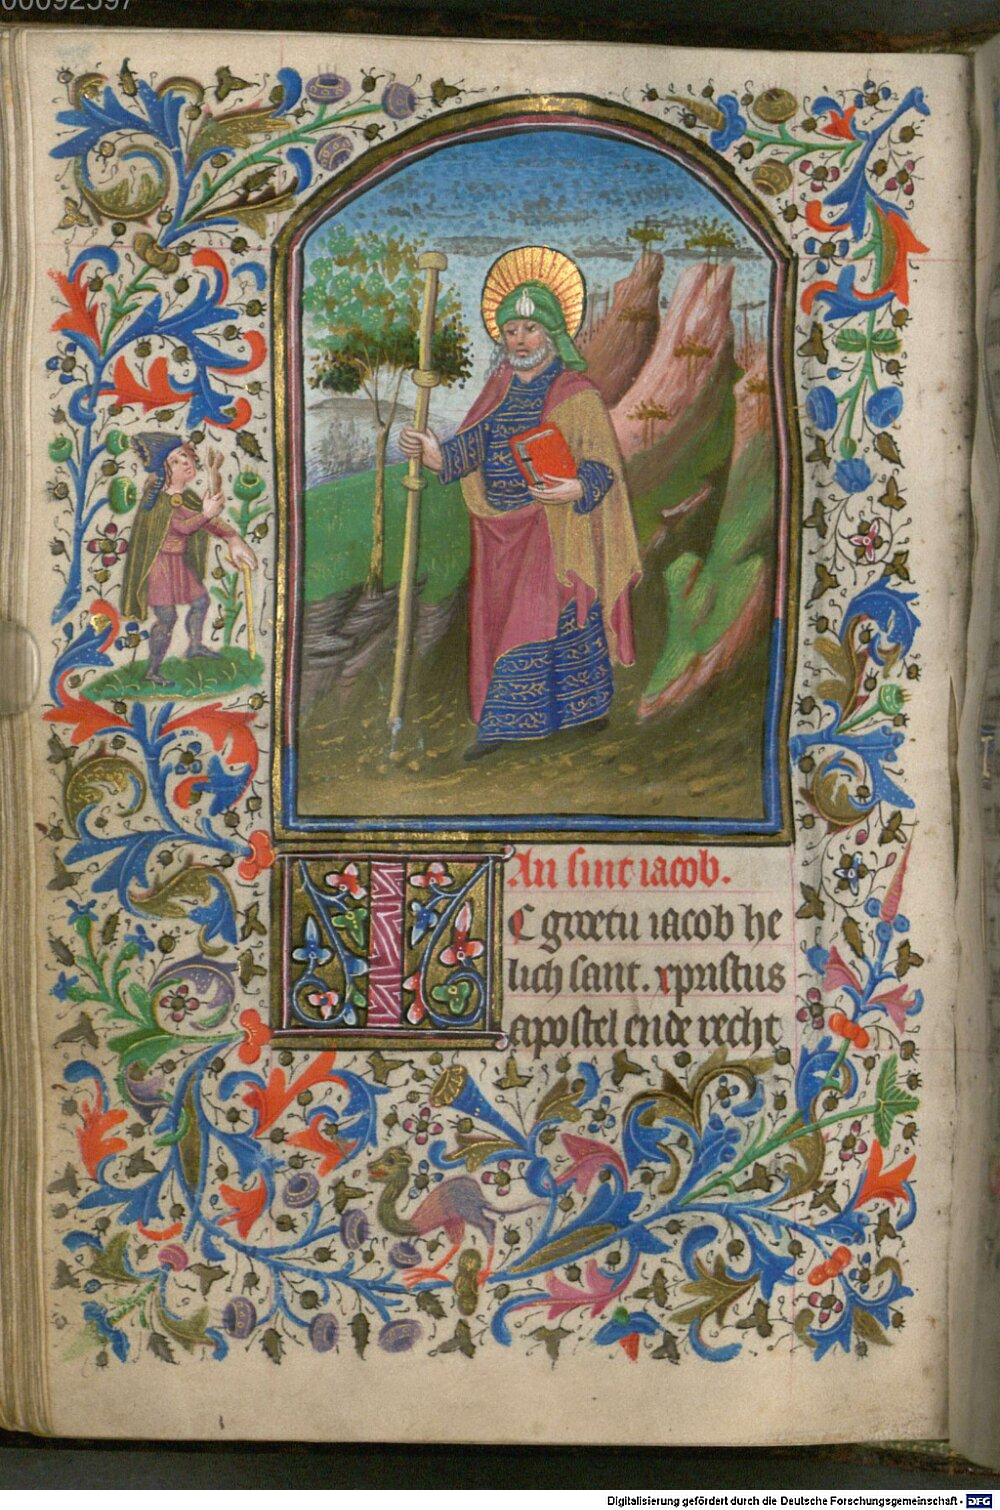 00092597
Uan sint iacob.
IC groetu iacob he
lich sant. xpristus
apostel ende recht
Digitalisierung gefördert durch die Deutsche Forschungsgemeinschaft - DFG